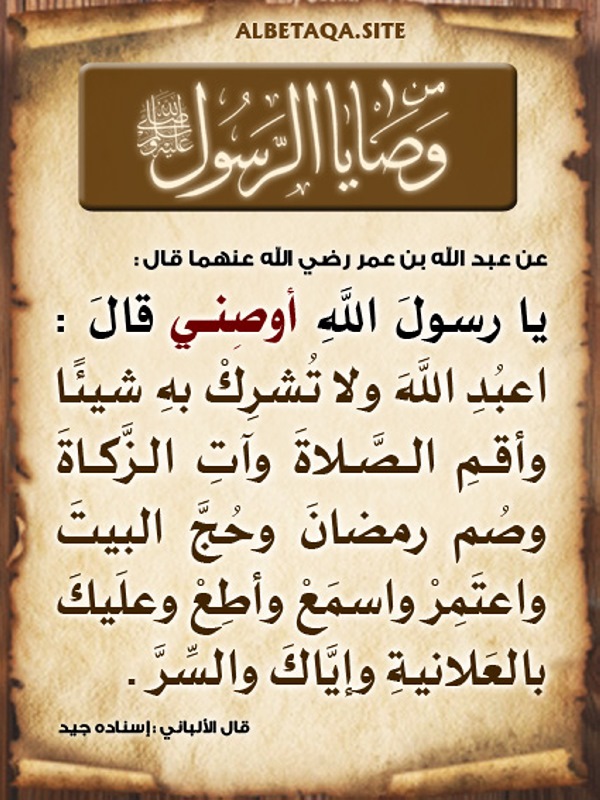 ALBETAQA.SITE
من وصايا الرسول ﷺ
عن عبد الله بن عمر رضي الله عنهما قال :
يا رسولَ اللَّهِ أوصِني قالَ :
اعبُدِ اللَّهَ ولا تُشرِكْ بهِ شيئًا
وأقمِ الصَّلاةَ وآتِ الزَّكاةَ
وصُم رمضانَ وحُجَّ البيتَ
واعتَمِرْ واسمَعْ وأطِعْ وعلَيكَ
بالعَلانيةِ وإيَّاكَ والسِّرَّ .
قال الألباني : إسناده جيد